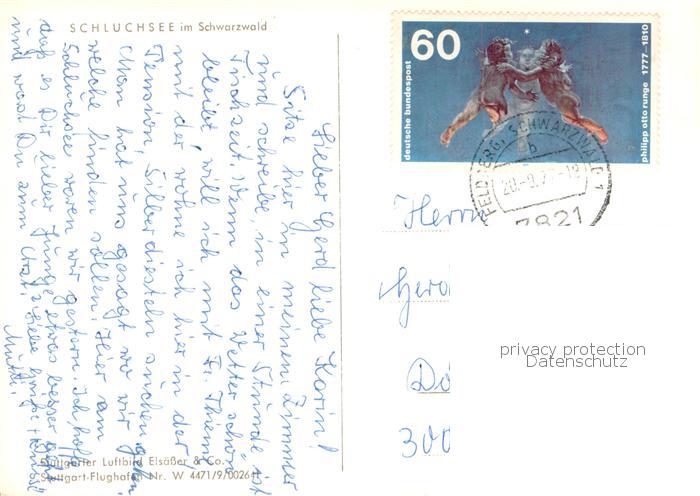 SCHLUCHSEE im Schwarzwald
Lieber Gerd liebe Karin!
Sitze hier in meinem Zimmer
und schreibe, in einer Stunde ist
Tischzeit. Wenn das Wetter schön
bleibt will ich mit Fr. Thieme
mit der wohne ich hier in der
Pension, Silberdiesteln suchen gehn.
Man hat uns gesagt wo wir
welche finden sollen. Hier am
Schluchsee waren wir gestern. Ich hoffe
daß es Dir lieber Junge etwas besser geht
und warst Du zum Arzt? Liebe Grüße + Kuss
Mutti.
Stuttgarter Luftbild Elsäßer & Co.
Stuttgart-Flughafen Nr. W 4471/9/0026
60
deutsche bundespost
philipp otto runge 1777-1810
FELDBERG, SCHWARZWALD 1
b
20.-9.7
-18
7821
Herrn
Gerd
Dö
300
privacy protection
Datenschutz